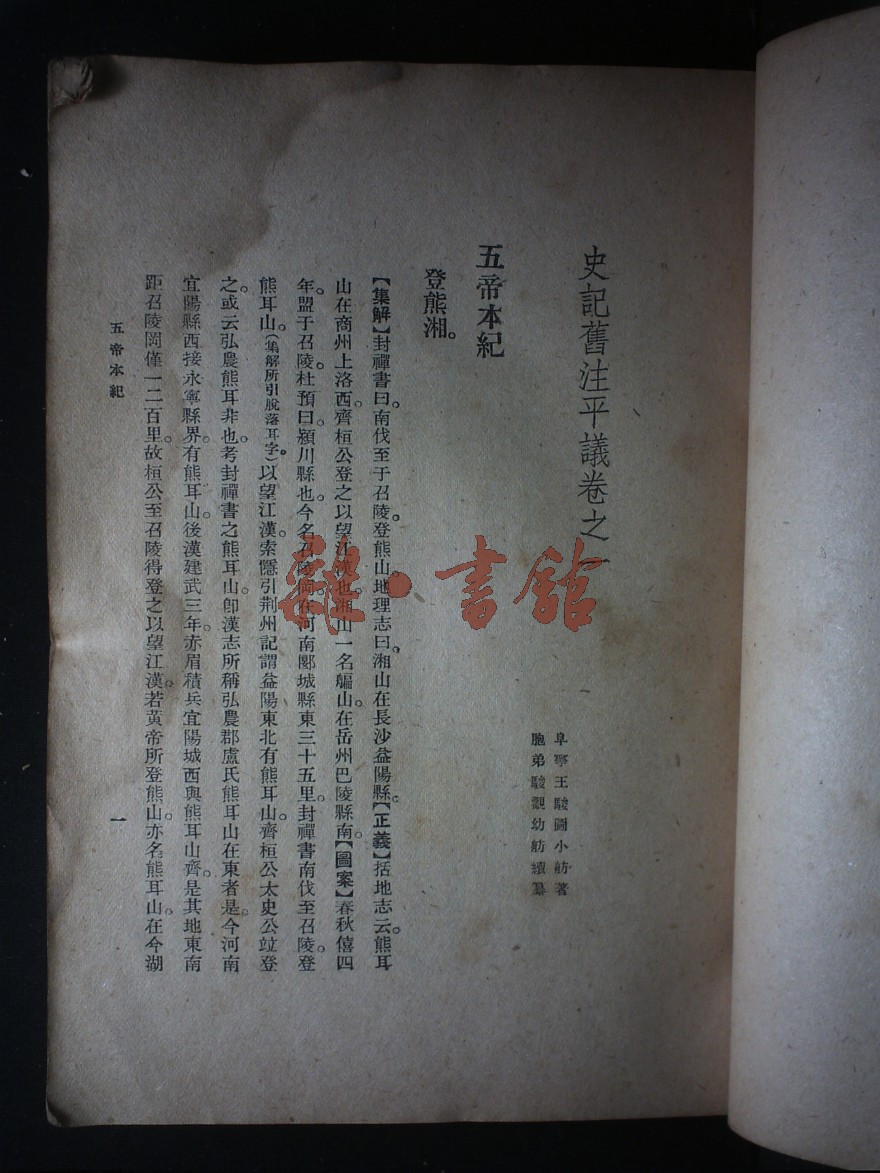 史記舊注平議卷之一
阜寧王駿圖小舫著
胞弟駿觀幼舫續纂
五帝本紀
登熊湘。
【集解】封禪書曰。南伐至于召陵。登熊山。地理志曰。湘山在長沙益陽縣。【正義】括地志云。熊耳
山在商州上洛西。齊桓公登之以望江漢也。湘山一名艑山。在岳州巴陵縣南。【圖案】春秋僖四
年。盟于召陵。杜預曰。潁川縣也。今名召陵岡。在河南郾城縣東三十五里。封禪書南伐至召陵。登
熊耳山。(集解所引脫落耳字)以望江漢。索隱引荆州記謂益陽東北有熊耳山。齊桓公太史公竝登
之。或云弘農熊耳。非也。考封禪書之熊耳山。卽漢志所稱弘農郡盧氏熊耳山在東者是。今河南
宜陽縣西接永寧縣界。有熊耳山。後漢建武三年。赤眉積兵宜陽城西與熊耳山齊。是其地東南
距召陵岡僅一二百里。故桓公至召陵得登之以望江漢。若黃帝所登熊山。亦名熊耳山。在今湖
五帝本紀
一
雜·書館